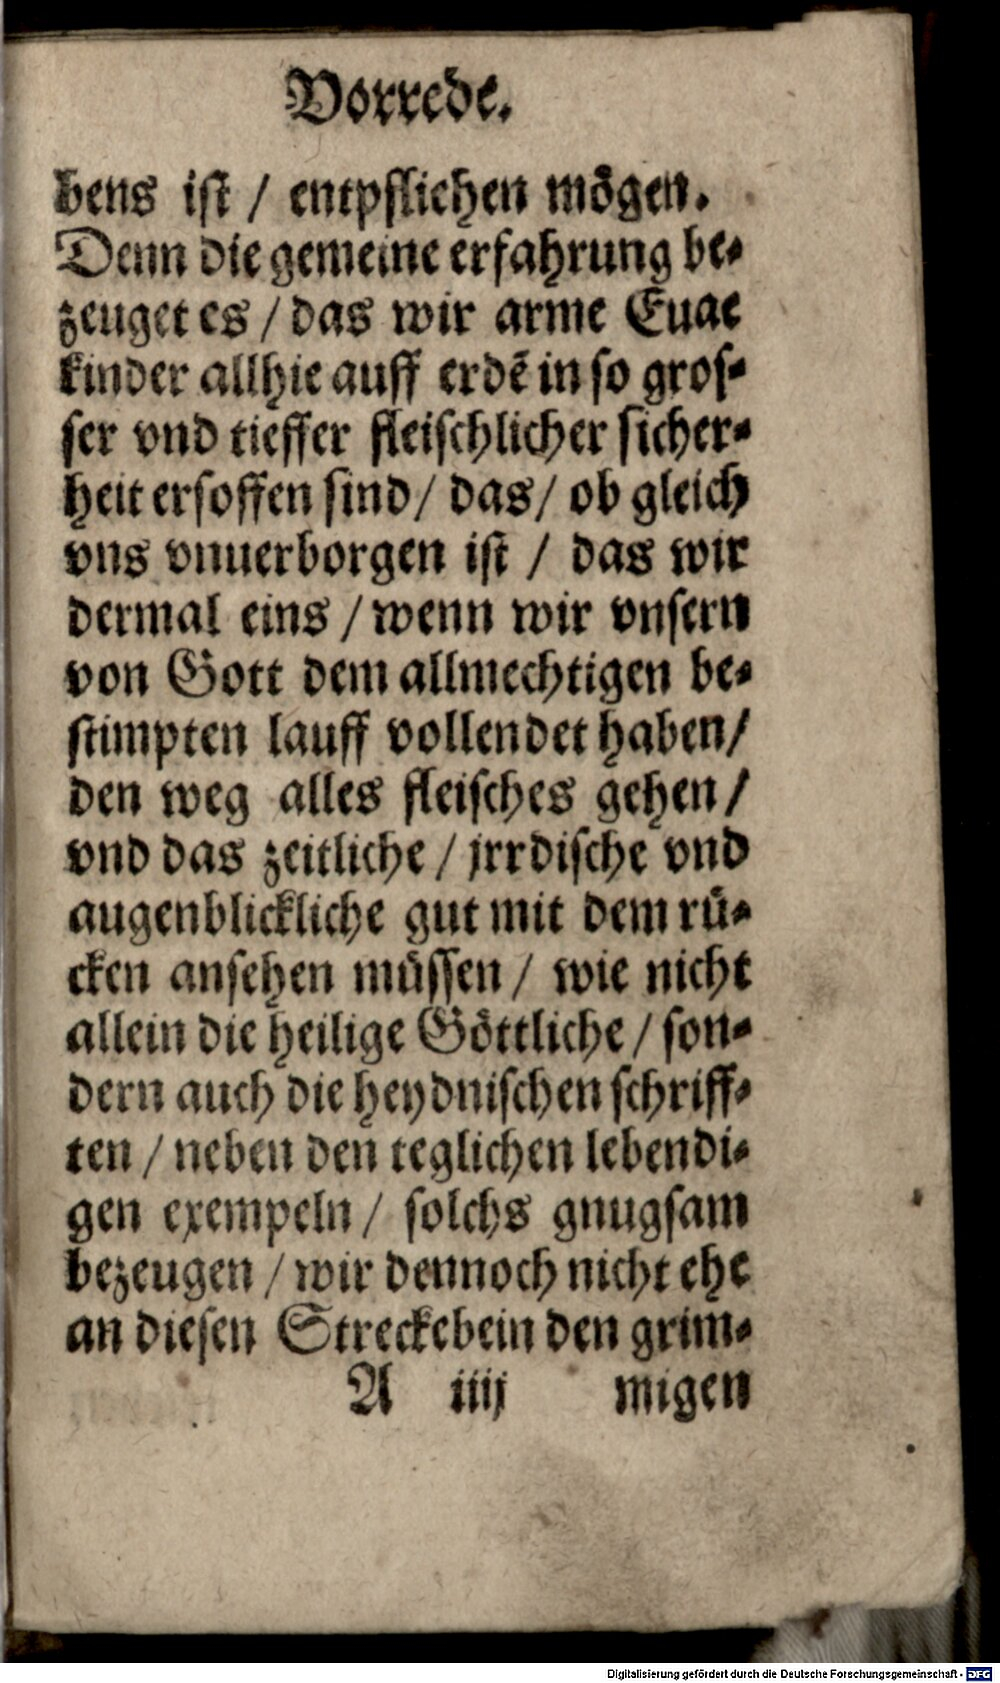 Vorrede.
bens ist / entpfliehen mögen.
Denn die gemeine erfahrung be-
zeuget es / das wir arme Euae
kinder allhie auff erdẽ in so gros-
ser vnd tieffer fleischlicher sicher-
heit ersoffen sind / das / ob gleich
vns vnuerborgen ist / das wir
dermal eins / wenn wir vnsern
von Gott dem allmechtigen be-
stimpten lauff vollendet haben /
den weg alles fleisches gehen /
vnd das zeitliche / jrrdische vnd
augenblickliche gut mit dem rü-
cken ansehen müssen / wie nicht
allein die heilige Göttliche / son-
dern auch die heydnischen schriff-
ten / neben den teglichen lebendi-
gen exempeln / solchs gnugsam
bezeugen / wir dennoch nicht ehe
an diesen Streckebein den grim-
A iiij migen
Digitalisierung gefördert durch die Deutsche Forschungsgemeinschaft - DFG